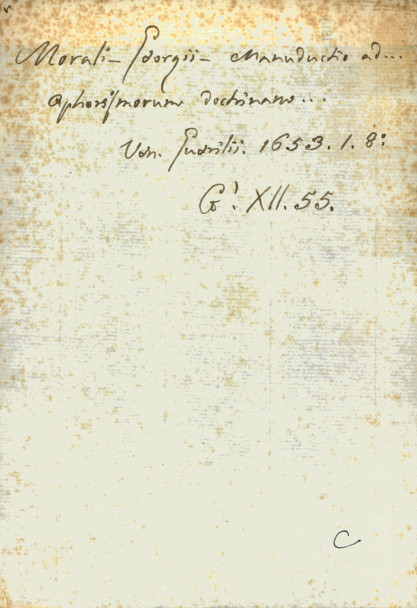 Morali - Georgii - Manuductio ad...
Aphorismorum doctrinam...
Ven. Guerilii. 1653. 1. 8:
G! XII. 55.
C